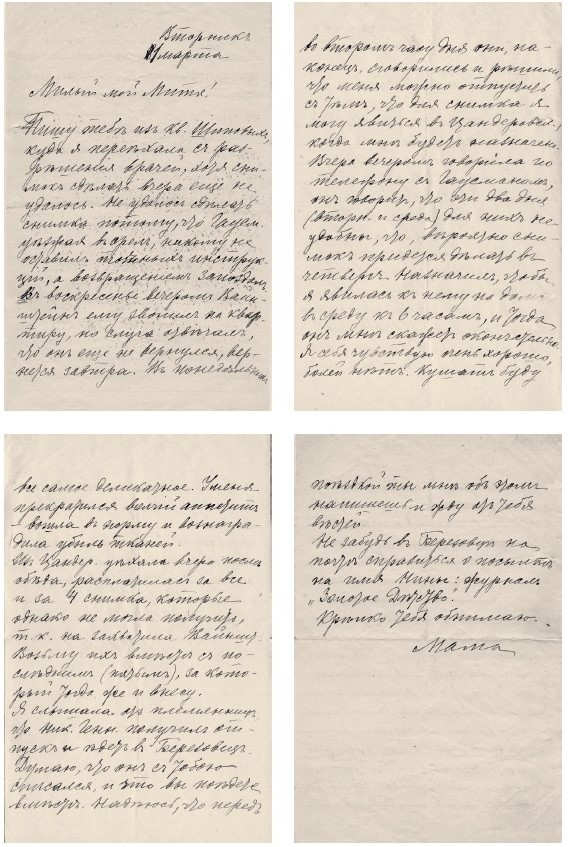 Вторникъ
марта
Милый мой Митя!
Пишу тебѣ изъ кв.
куда я переѣхала съ раз-
рѣшенія врачей, хотя сни-
мокъ сдѣлать вчера еще не
удалось. Не удалось сдѣлать
снимка потому, что
никому не
оставилъ точныхъ инструк-
цій, а возвращеніемъ запоздалъ.
Въ воскресенье вечеромъ
ему звонили на квар-
тиру, но отвѣчалъ,
что онъ еще не вернулся, вер-
нется завтра. Въ понедѣльникъ
во второмъ часу дня они, на-
конецъ, сговорились и рѣшили,
что меня можно отпустить
съ тѣмъ, что для снимка я
могу явиться въ
когда мнѣ будетъ назначено.
Вчера вечеромъ говорила по
телефону съ Гаусманомъ,
онъ говоритъ, что эти два дня
(вторн. и среда) для нихъ не-
удобны, что, вѣроятно сни-
мокъ придется дѣлать въ
четвергъ. Назначилъ, чтобы
я явилась къ нему на домъ
въ среду къ 6 часамъ, и тогда
онъ мнѣ скажетъ окончательно.
Я себя чувствую очень хорошо,
болей нѣтъ. Кушать буду
все самое деликатное. У меня
прекратился аппетитъ
вошла въ норму и вознагра-
дила убыль тканей.
Изъ уѣхала вчера послѣ
обѣда, расплатилась за все
и за 4 снимка, которые
однако не могла получить,
т. к. не захватила
Возьму ихъ вмѣстѣ съ по-
слѣднимъ (пятымъ), за кото-
рый тогда же и внесу.
Я слышала отъ племянницы,
что Ник. Генн. получилъ от-
пускъ и ѣдетъ въ Березовецъ.
Думаю, что онъ съ тобою
списался, и что вы поѣдете
вмѣстѣ. Надѣюсь, что передъ
поѣздкой ты мнѣ объ этомъ
напишешь и жду отъ тебя
вѣстей.
Не забудь въ Березовцѣ на
почтѣ справиться о посылкѣ
на имя Нины: журналъ
„Золотое Дѣтство“.
Крѣпко тебя обнимаю.
Мама